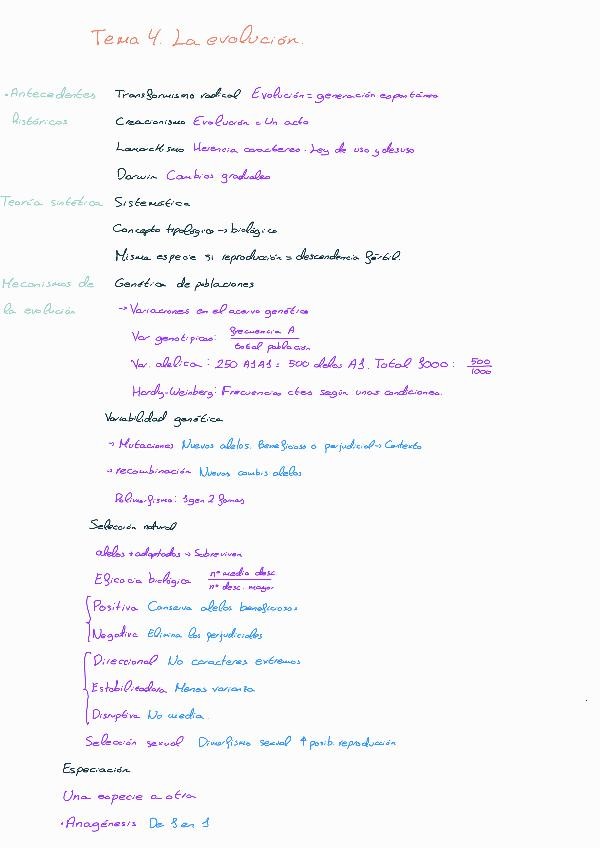 Tema 4. La evolución.
• Antecedentes históricos
Transformismo radical Evolución = generación espontánea
Creacionismo Evolución = Un acto
Lamarkismo Herencia caracteres. Ley de uso y desuso
Darwin Cambios graduales
Teoría sintética Sistemática
Concepto tipológico → biológico
Misma especie si reproducción = descendencia fértil.
Mecanismos de la evolución
Genética de poblaciones
→ Variaciones en el acervo genético
Var genotípicas: frecuencia A / total población
Var. alélica: 250 A1A1 = 500 alelos A1. Total 1000: 500/1000
Hardy-Weinberg: Frecuencias ctes según unas condiciones.
Variabilidad genética
→ Mutaciones Nuevos alelos. Beneficioso o perjudicial → Contexto
→ recombinación Nuevas combis alelos
Polimorfismo: 1 gen 2 formas
Selección natural
alelos + adaptados → Sobreviven
Eficacia biológica nº medio desc / nº desc. mayor
Positiva Conserva alelos beneficiosos
Negativa Elimina los perjudiciales
Direccional No caracteres extremos
Estabilizadora Menos varianza
Disruptiva No media.
Selección sexual Dimorfismo sexual ↑ posib. reproducción
Especiación
Una especie a otra
• Anagénesis De 1 en 1